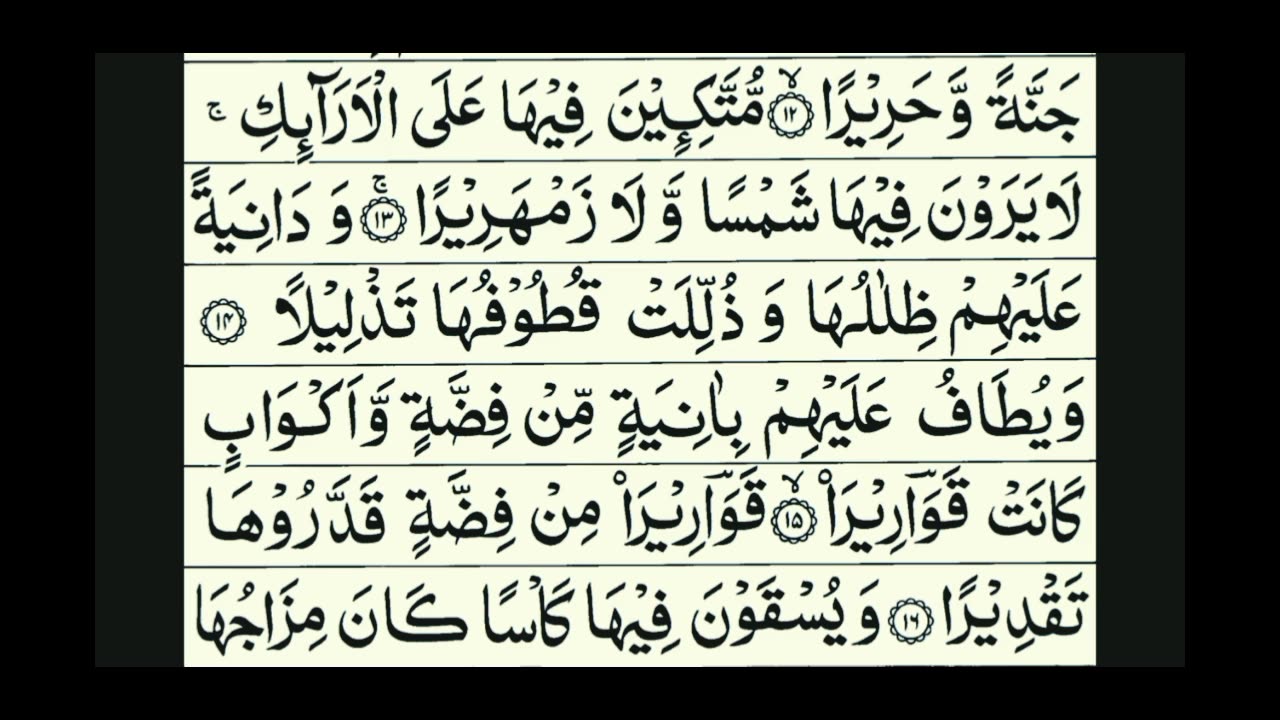 جَنَّةً وَّ حَرِيْرًا ۙ﴿۱۲﴾ مُّتَّكِـِٕيْنَ فِيْهَا عَلَى الْاَرَآىِٕكِ ۚ
لَا يَرَوْنَ فِيْهَا شَمْسًا وَّ لَا زَمْهَرِيْرًا ۚ﴿۱۳﴾ وَ دَانِيَةً
عَلَيْهِمْ ظِلٰلُهَا وَ ذُلِّلَتْ قُطُوْفُهَا تَذْلِيْلًا ﴿۱۴﴾
وَ يُطَافُ عَلَيْهِمْ بِاٰنِيَةٍ مِّنْ فِضَّةٍ وَّ اَكْوَابٍ
كَانَتْ قَوَارِيْرَا۠ ۙ﴿۱۵﴾ قَوَارِيْرَا۠ مِنْ فِضَّةٍ قَدَّرُوْهَا
تَقْدِيْرًا ﴿۱۶﴾ وَ يُسْقَوْنَ فِيْهَا كَاْسًا كَانَ مِزَاجُهَا